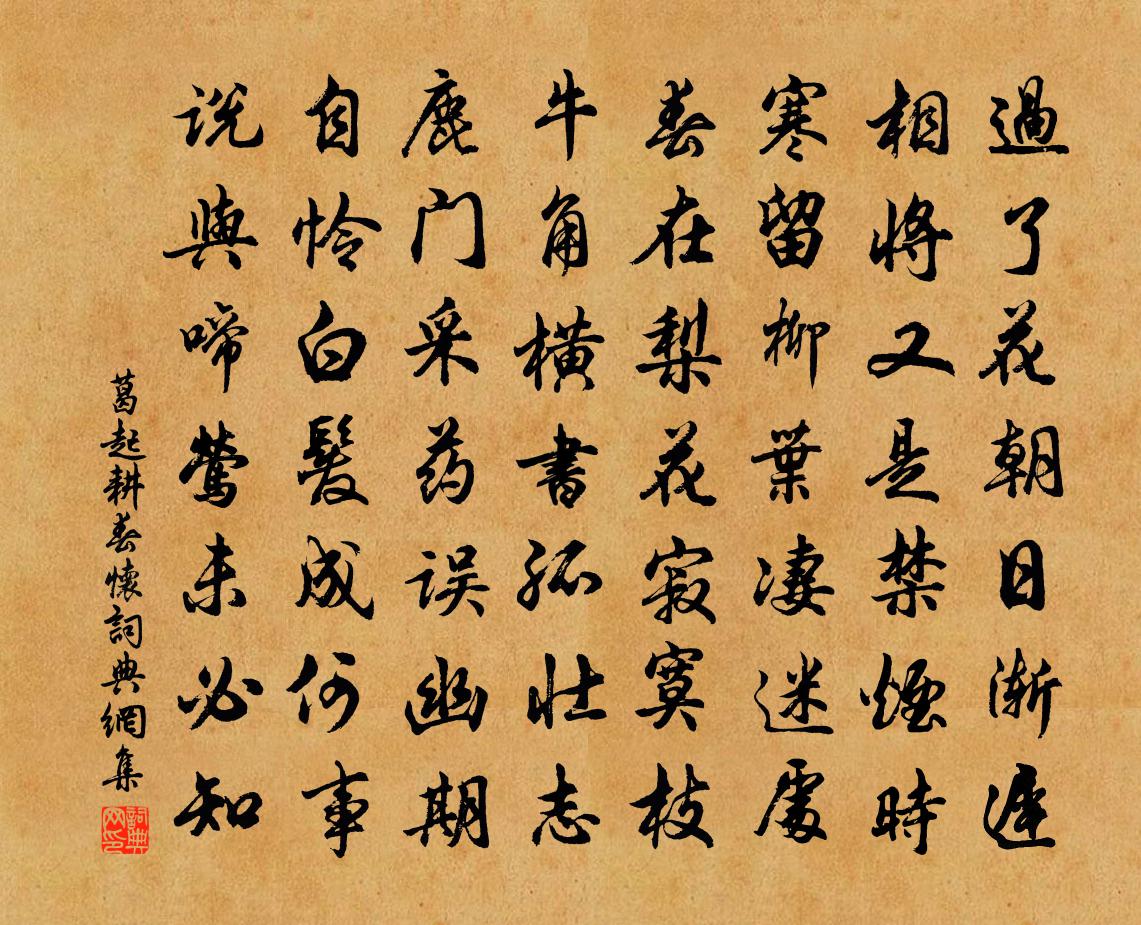 過了花朝日渐遲
相將又是禁煙時
寒留柳葉凄迷處
春在梨花寂寞枝
牛角橫書孤壮志
鹿门采药误幽期
自怜白髮成何事
说與啼鶯未必知
葛起耕春懷詞典網集
詞典网印